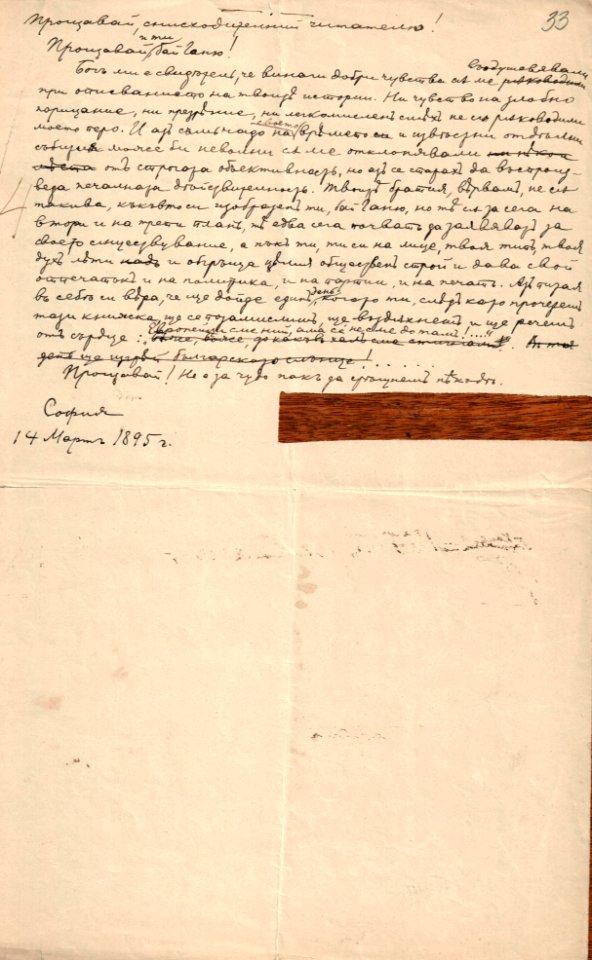 33
Прощавай, снисходителний читателю!
Прощавай и ти, бай Ганю!
Богъ ми е свидѣтель, че винаги добри чувства сѫ ме рѫководили въодушевявали
при описванието на твоитѣ истории. Ни чувство на злобно
порицание, ни презрѣние, ни лекомисленъ смѣхъ не сѫ рѫководили
моето перо. И азъ съмъ чадо на врѣмето си и извѣстни отдѣлни
събития може би неволно сѫ ме отклонявали
отъ строгата обективность, но азъ се старахъ да възпроиз-
веда печалната дѣйствителность. Твоитѣ братия, вѣрвамъ, не сѫ
такива, какъвто си изобразенъ ти, бай Ганю, но тѣ сѫ за сега на
втори и на трети планъ, тѣ едва сега почватъ да заявяватъ за
своето сѫществувание, а пъкъ ти, ти си на лице, твоя типъ твоя
духъ лѣти надъ и обръща цѣлия общественъ строй и дава свой
отпечатокъ и на политика, и на партии, и на печатъ. Азъ питая
въ себѣ си вѣра, че ще дойде единъ день, когато ти, слѣдъ като прочетешъ
тази книжка, ще се позамислишъ, ще въздъхнешъ и ще речешъ
отъ сърдце: „Европейци сме ний, ама се не сме до тамъ!....“
денъ ще изгрѣй българското слънце! . . . . .
Прощавай! Не е за чудо пакъ да срѣщнемъ нѣкогашъ.
София
14 Мартъ 1895 г.